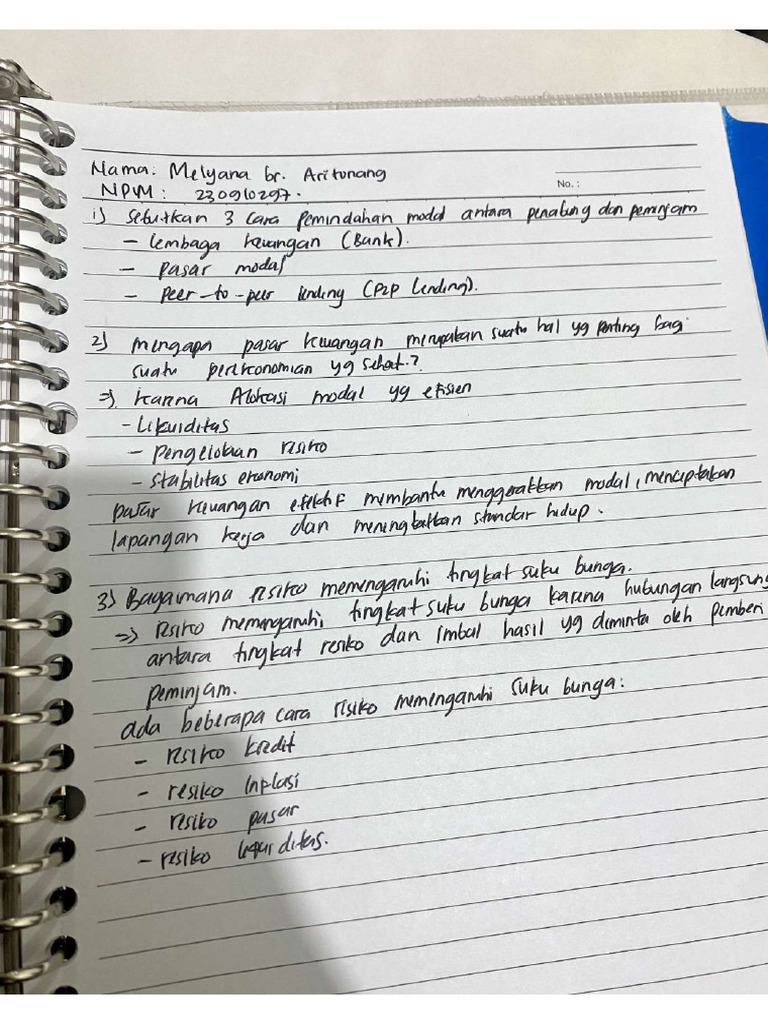 No.:
Nama: Melyana br. Aritonang
NPM: 230910297.
1) Sebutkan 3 cara pemindahan modal antara penabung dan peminjam
- lembaga keuangan (Bank).
- pasar modal
- peer-to-peer lending (P2P Lending).
2) mengapa pasar keuangan merupakan suatu hal yg penting bagi
suatu perekonomian yg sehat.?
=> karena Alokasi modal yg efisien
- Likuiditas
- pengelolaan risiko
- stabilitas ekonomi
pasar keuangan efektif membantu menggerakkan modal, menciptakan
lapangan kerja dan meningkatkan standar hidup.
3) Bagaimana risiko memengaruhi tingkat suku bunga.
=> risiko memengaruhi tingkat suku bunga karena hubungan langsung
antara tingkat resiko dan imbal hasil yg diminta oleh pemberi
peminjam.
ada beberapa cara risiko memengaruhi suku bunga:
- risiko kredit
- resiko inplasi
- resiko pasar
- resiko liquiditas.